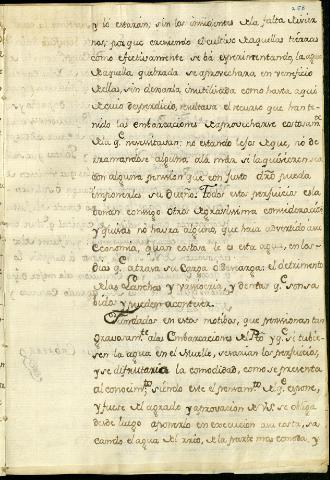 258
y lo estaràn; sin los incidentes de la falta de vive
res; porque creciendo el cultivo de aquellas tierras
como efectivamente se bà experimentando, la agua
de aquella quebrada se aprovechara en veneficio
de ellas, sin dexarla inutilizada como hasta aqui
de cuio desperdicio, resultava el recurso que han te
nido las embarcaciones de aprovecharse costosamte
de la qe. necesitavan: no estando lejos de que, no de
rramandose alguna à la mar si la quisieren sea
con alguna pension que con justo dro pueda
imponerles su Dueño. Todos estos perjuicios
consigo otra de gravissima consideracion
y quizas no havrà alguno, que haia advertido
economia, quan costosa le es esta agua, en los
dias qe. atrasa su Carga ò Descarga: el detrimento
de las Lanchas y y demas qe. son sa
bidos y pueden acontecer.
Fundados en estos motibos, que pensionan tan
gravosamte. à las Embarcaciones del Pto y qe. se tubie
sen la agua en el Muelle, evitarian los perjuicios,
y se disfrutaria la comodidad, como se presenta
al conocimto. siendo este el pensamto. del qe. espone,
y fuese del agrado y aprovacion de V.S. se obliga
desde luego aponerlo en execucion à su costa, sa
cando el agua del rio, de la parte mas comoda, y